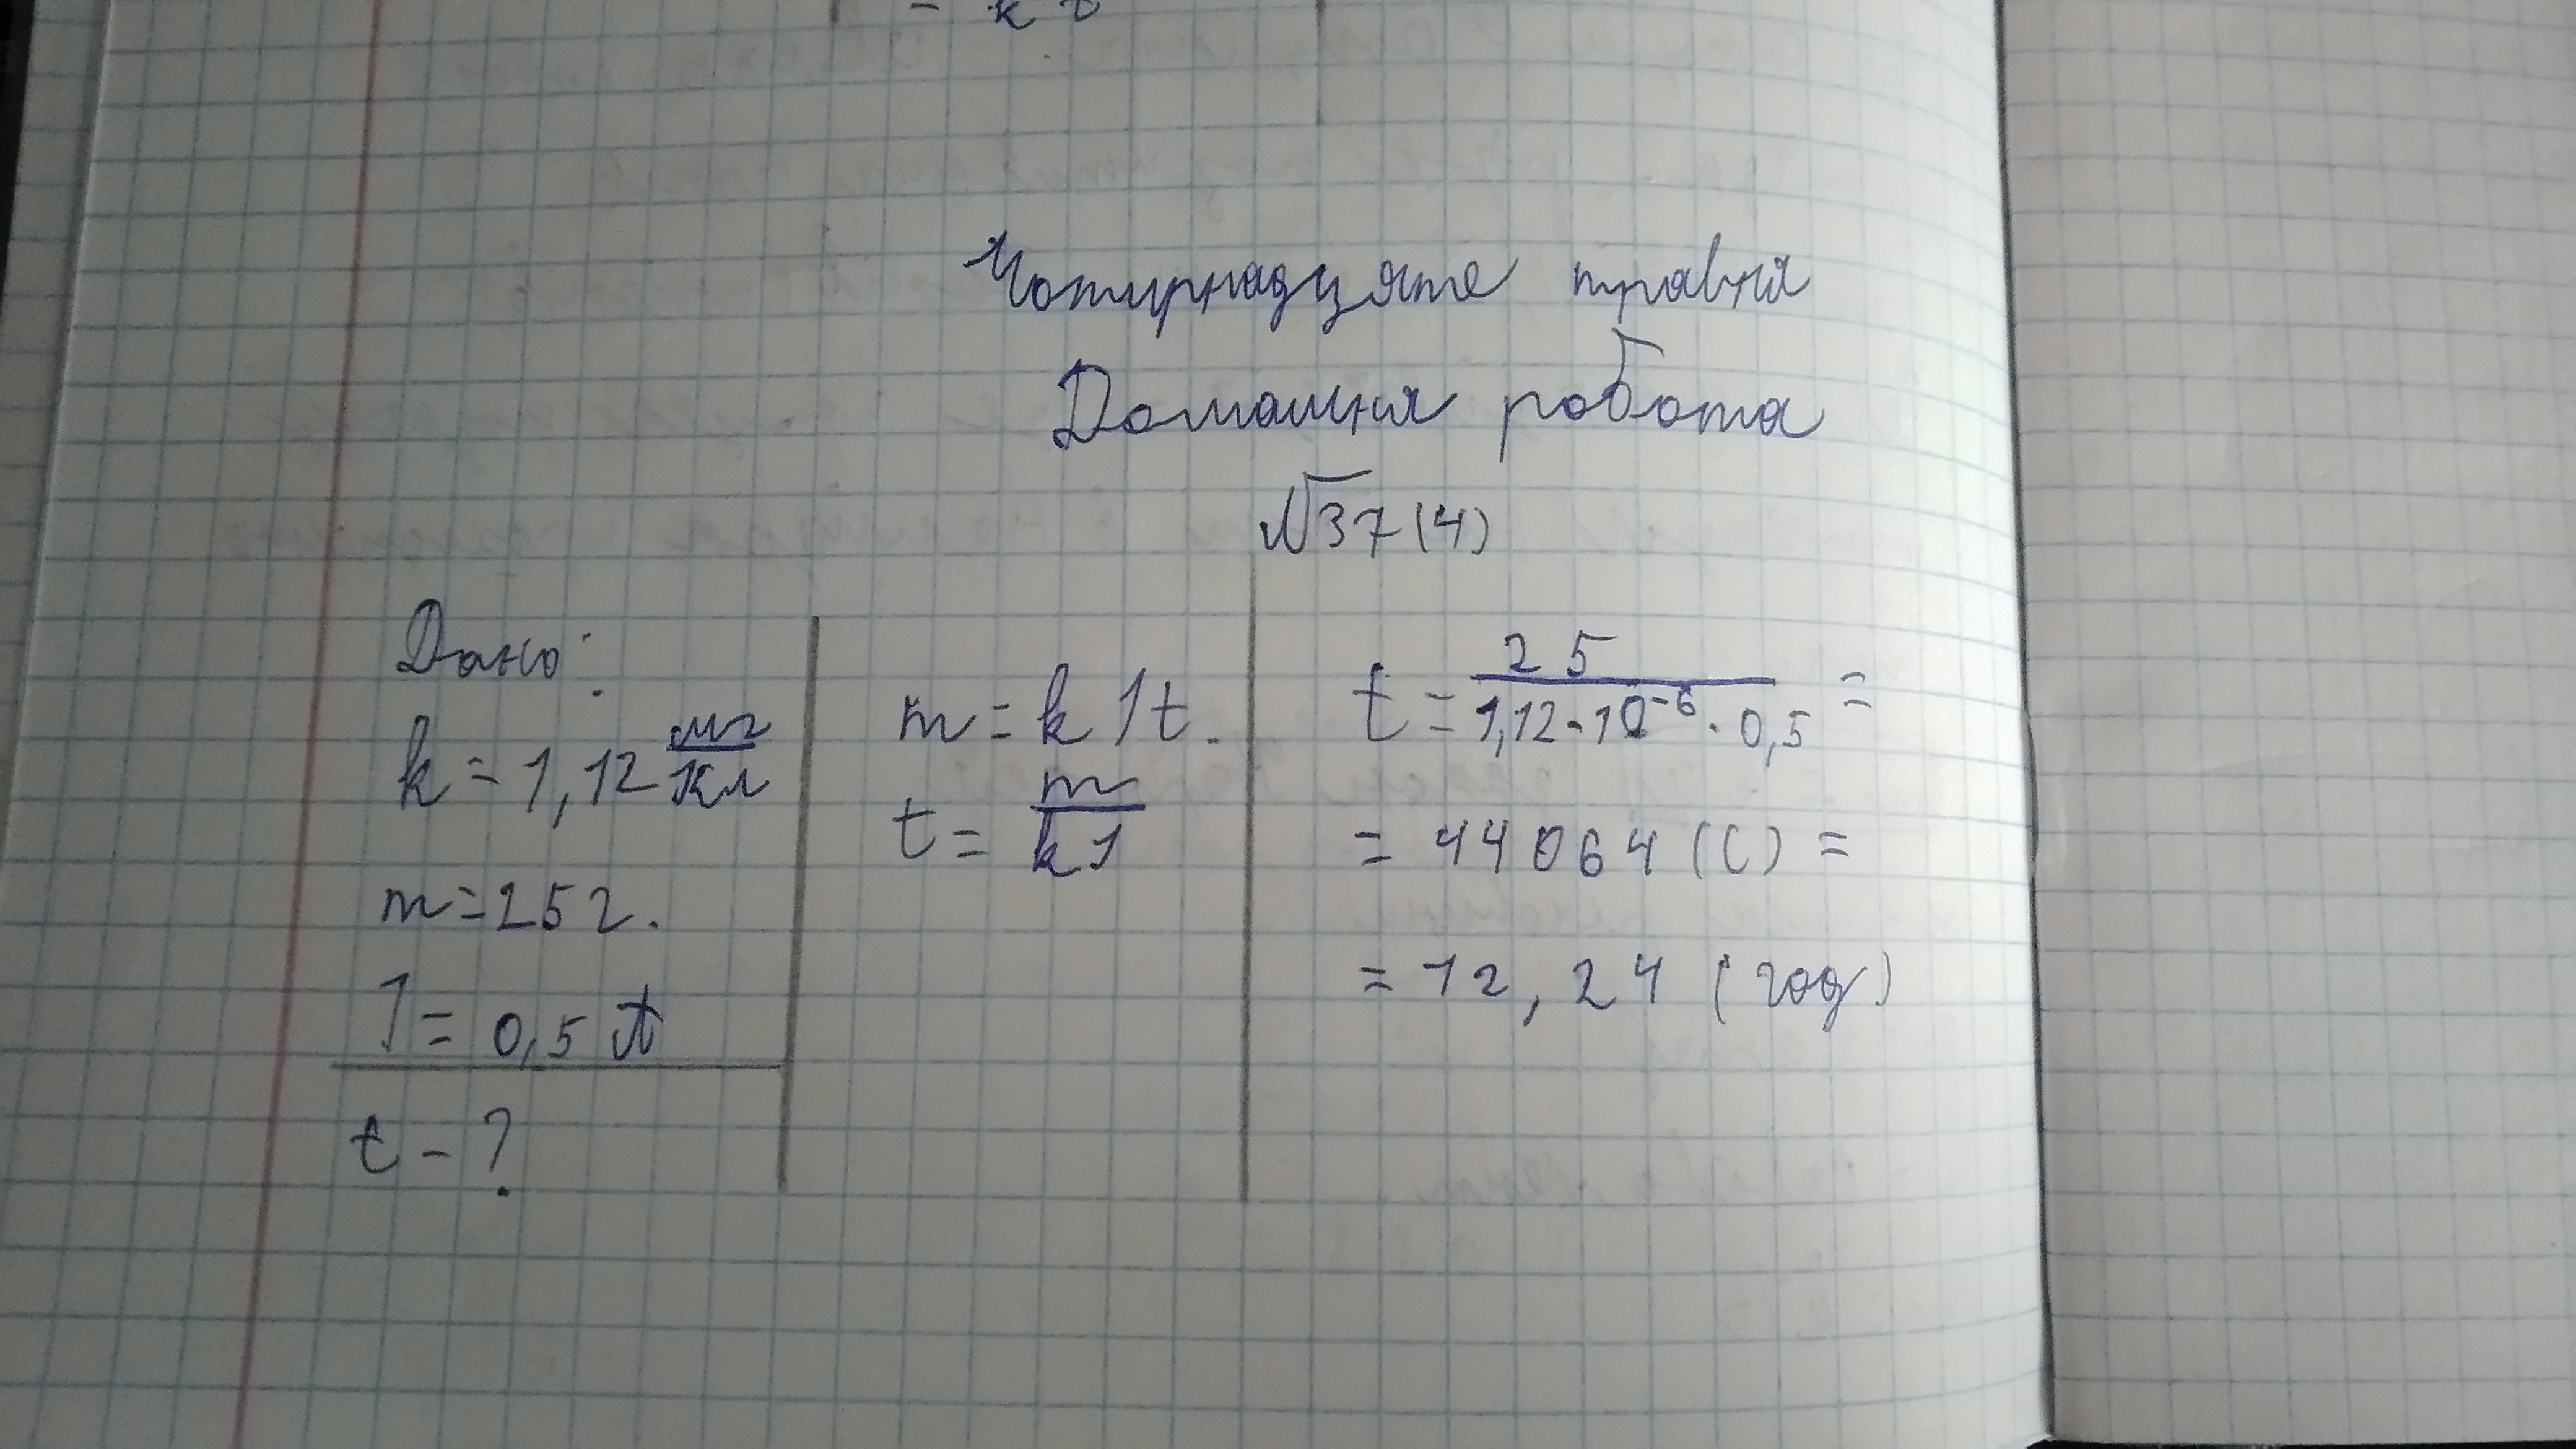 Чотирнадцяте травня
Домашня робота
№37(4)
Дано:
k = 1,12 мг/Кл
m = 25 г.
I = 0,5 А
t - ?
m = k I t.
t = m/k I
t = 25/1,12 · 10⁻⁶ · 0,5 =
= 44064 (с) =
= 12,24 (год)